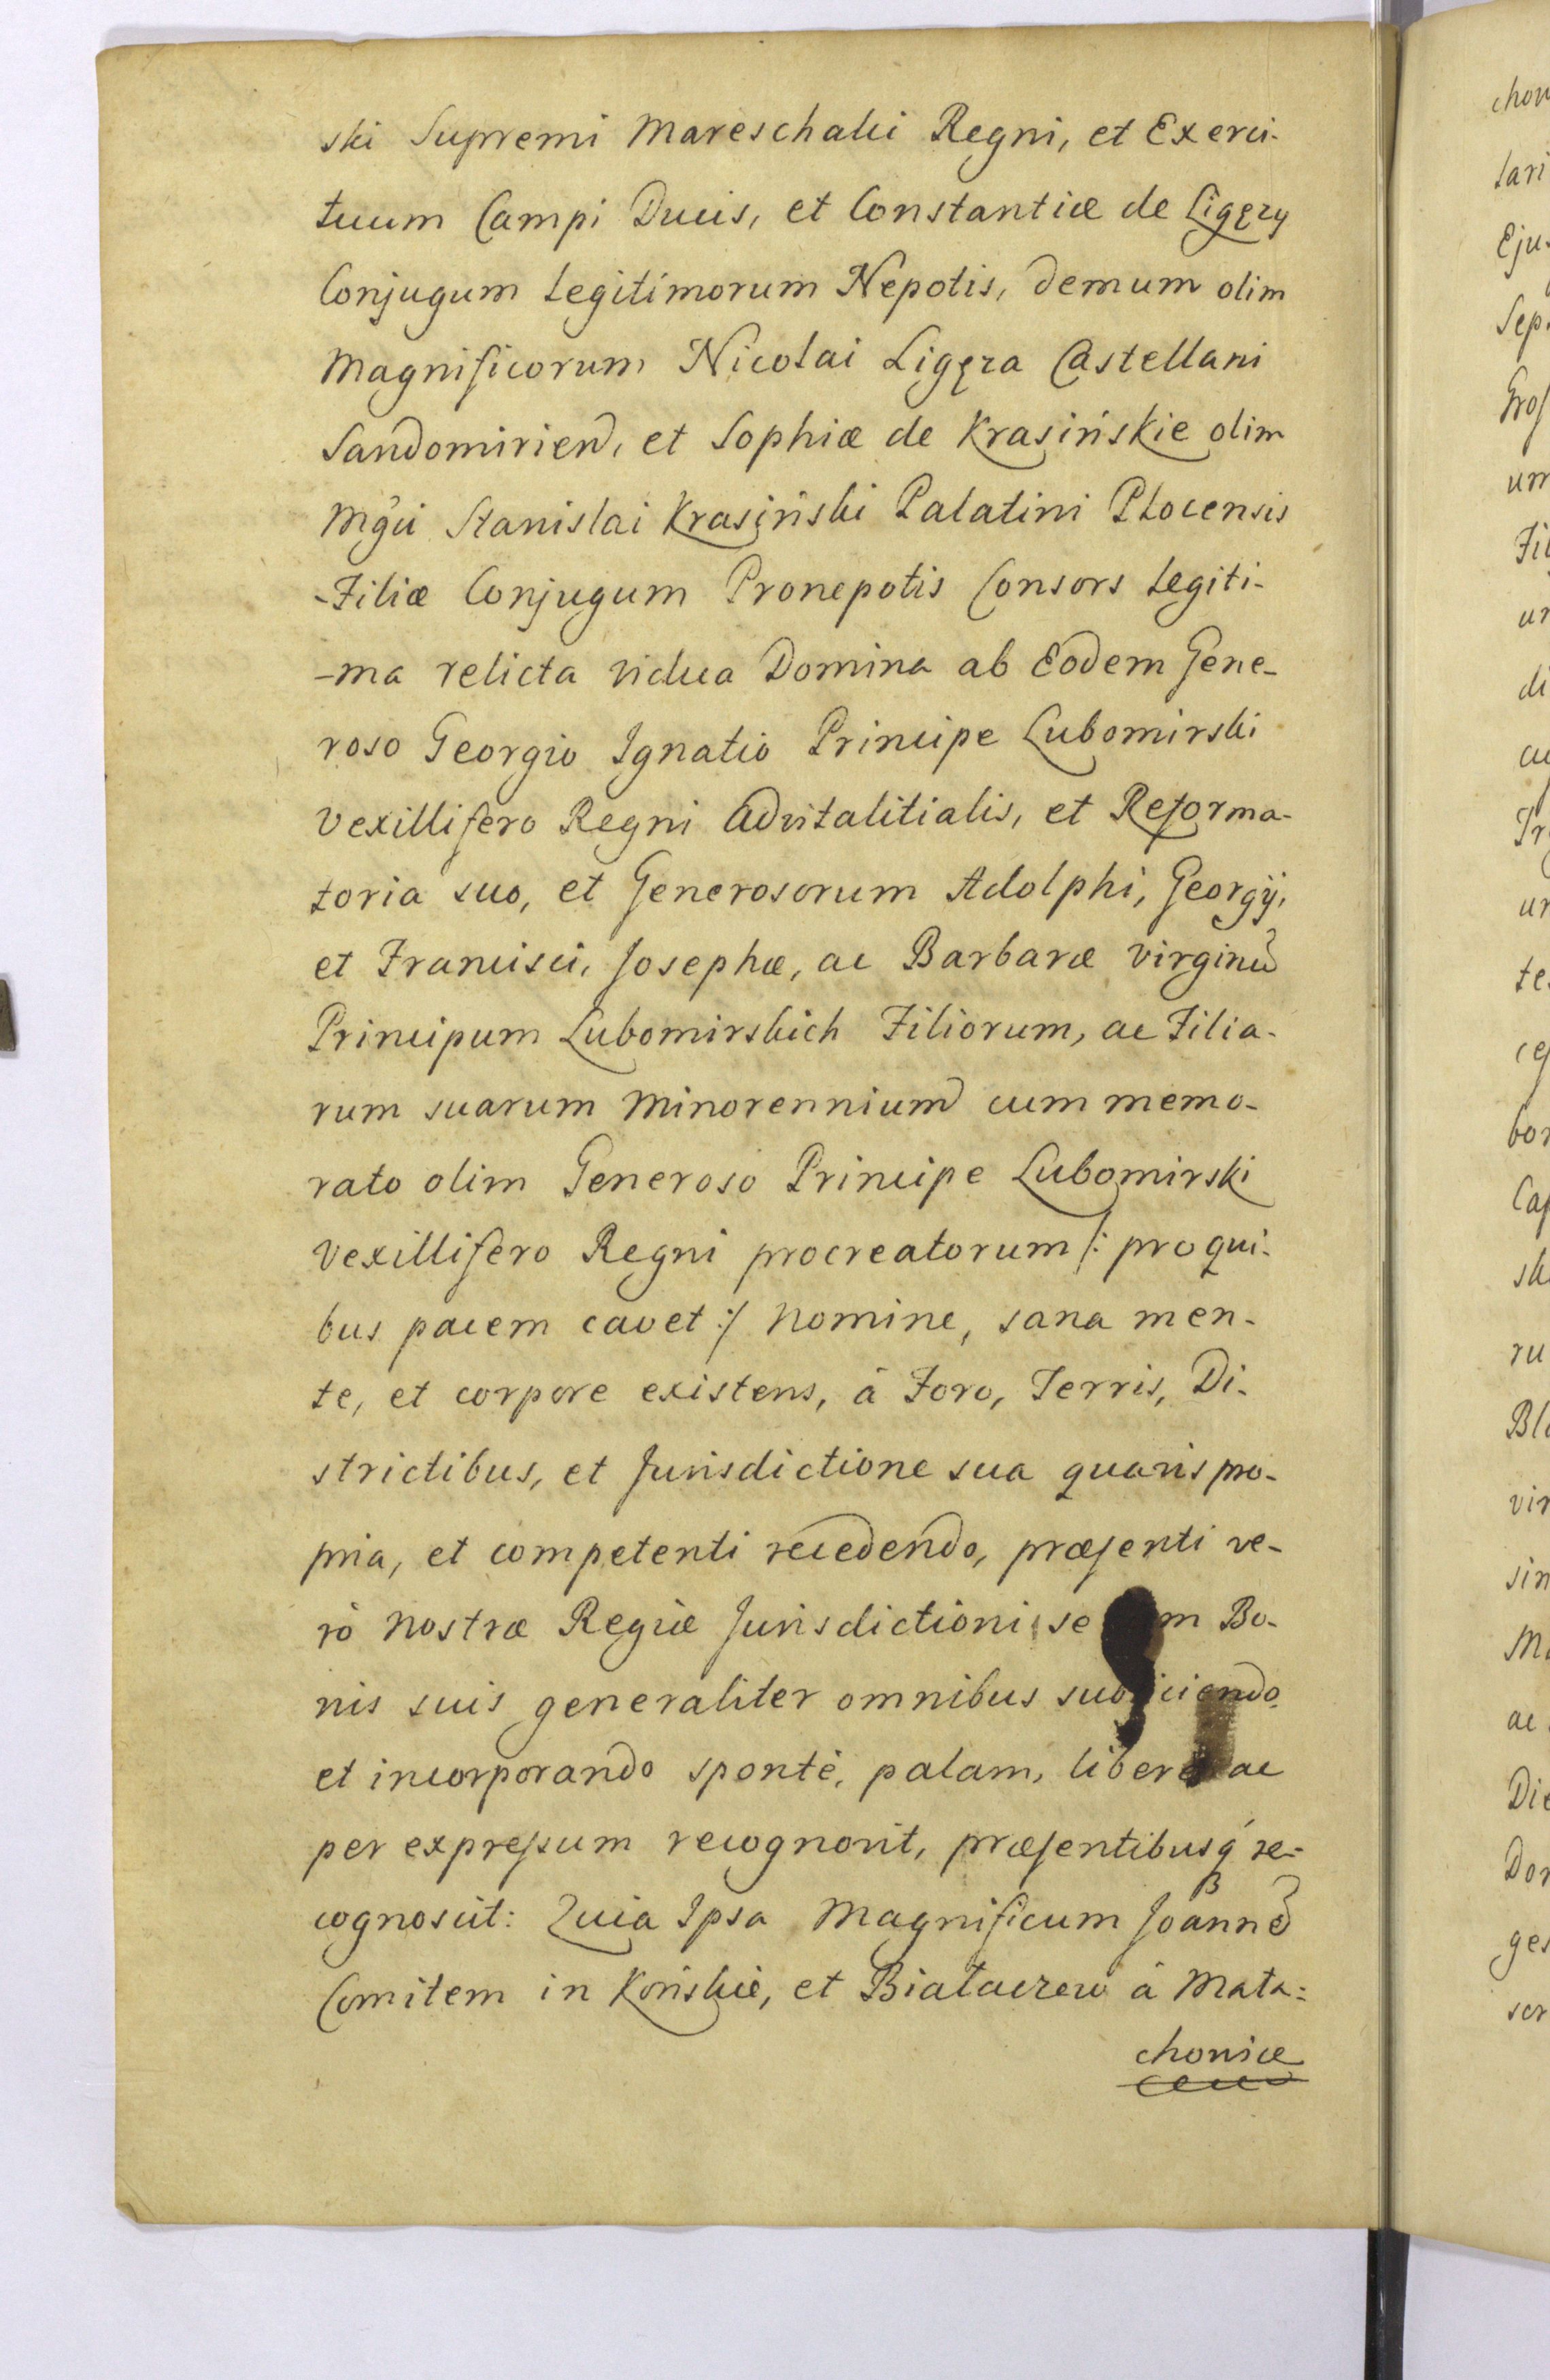 ski Supremi Mareschalci Regni, et Exerci-
tuum Campi Ducis, et Constantiæ de Ligęzy
Conjugum Legitimorum Nepotis, demum olim
Magnificorum Nicolai Ligęza Castellani
Sandomirien, et Sophiæ de Krasińskie olim
Mgci Stanislai Krasiński Palatini Plocensis
-Filiæ Conjugum Pronepotis Consors Legiti-
-ma relicta vidua Domina ab Eodem Gene-
roso Georgio Ignatio Principe Lubomirski
Vexillifero Regni Advitalitialis, et Reforma-
toria suo, et Generosorum Adolphi, Georgij,
et Francisci, Josephæ, ac Barbaræ Virginũ
Principum Lubomirskich Filiorum, ac Filia-
rum suarum Minorennium cum memo-
rato olim Generoso Principe Lubomirski
Vexillifero Regni procreatorum /: pro qui-
bus pacem cavet :/ Nomine, sana men-
te, et corpore existens, à Foro, Terris, Di-
strictibus, et Jurisdictione sua quavis pro-
pria, et competenti recedendo, præsenti ve-
rò Nostræ Regiæ Jurisdictioni se Bo-
nis suis generaliter omnibus subjiciendo
et incorporando spontè, palam, liberè ac
per expressum recognovit, præsentibusq́ re-
cognoscit: Quia Ipsa Magnificum Joannẽ
Comitem in Końskie, et Białaczew à Mała-
chowice